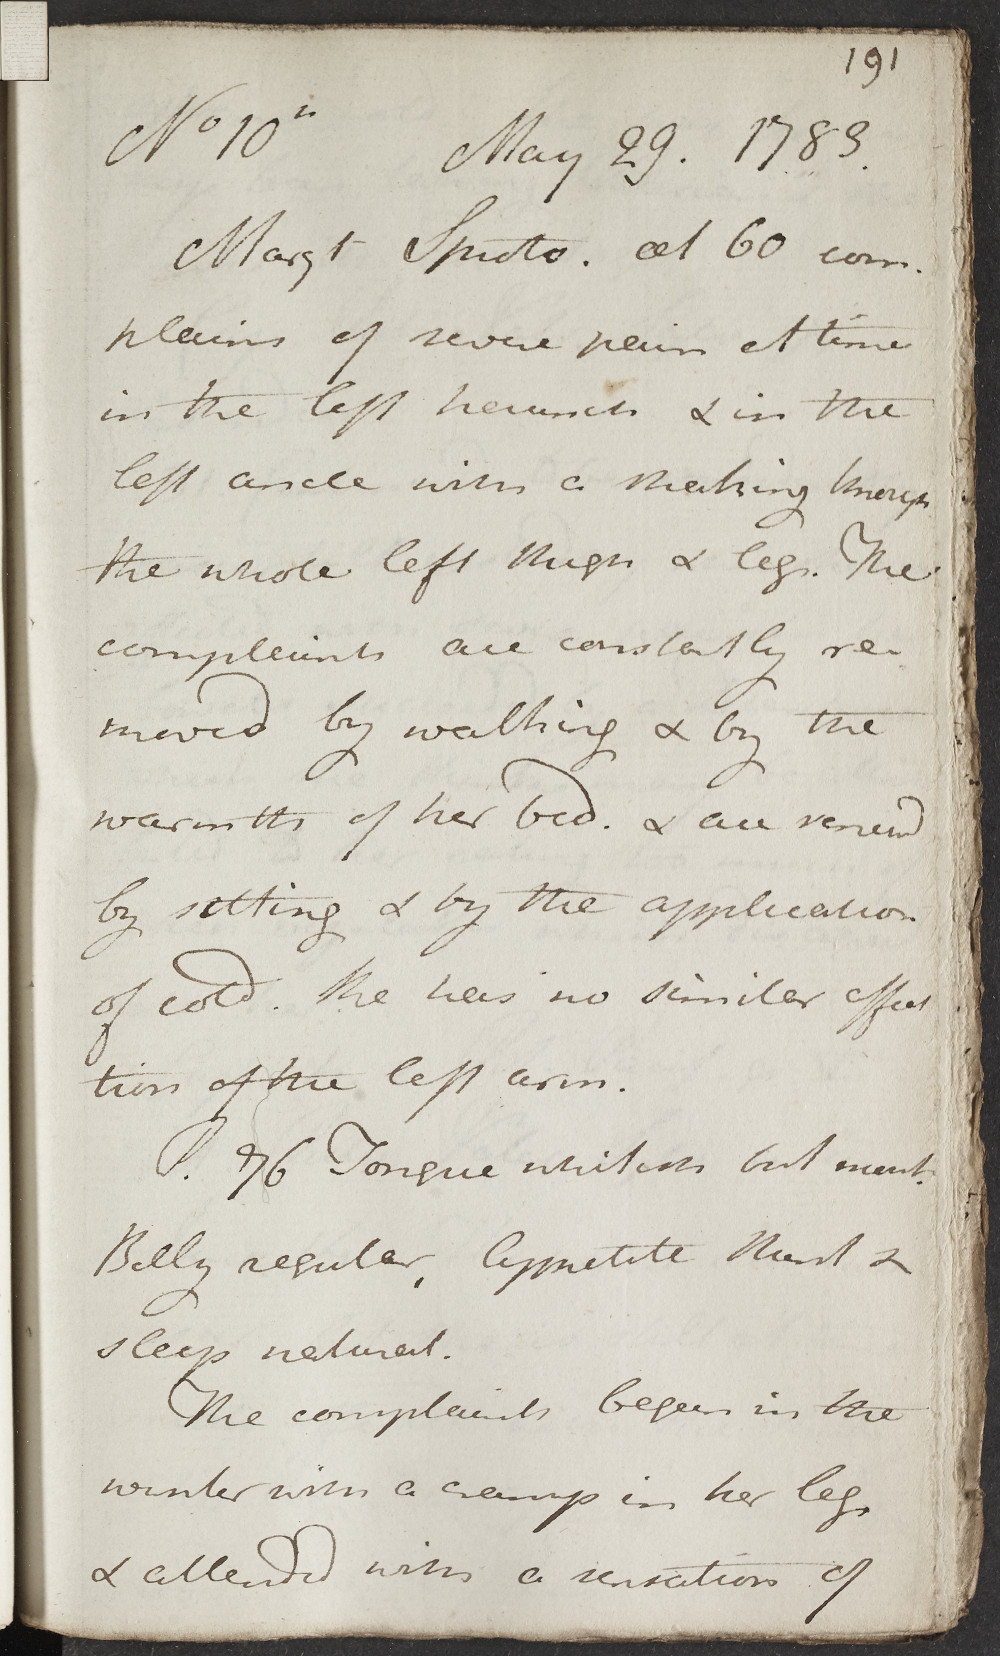 191
No 10th May 29. 1783.
Margt aet 60 com-
plains of severe pain at times
in the left haunch & in the
left ancle with a shaking through
the whole left thigh & leg. The
complaints are constantly re-
moved by walking & by the
warmth of her bed. & are renewd
by sitting & by the application
of cold. She has no similar affec
tion of the left arm.
P. 76 Tongue whitish but moist.
Belly regular, Appetite thirst &
sleep natural.
The complaints began in the
winter with a cramp in her leg,
& attended with a sensation of